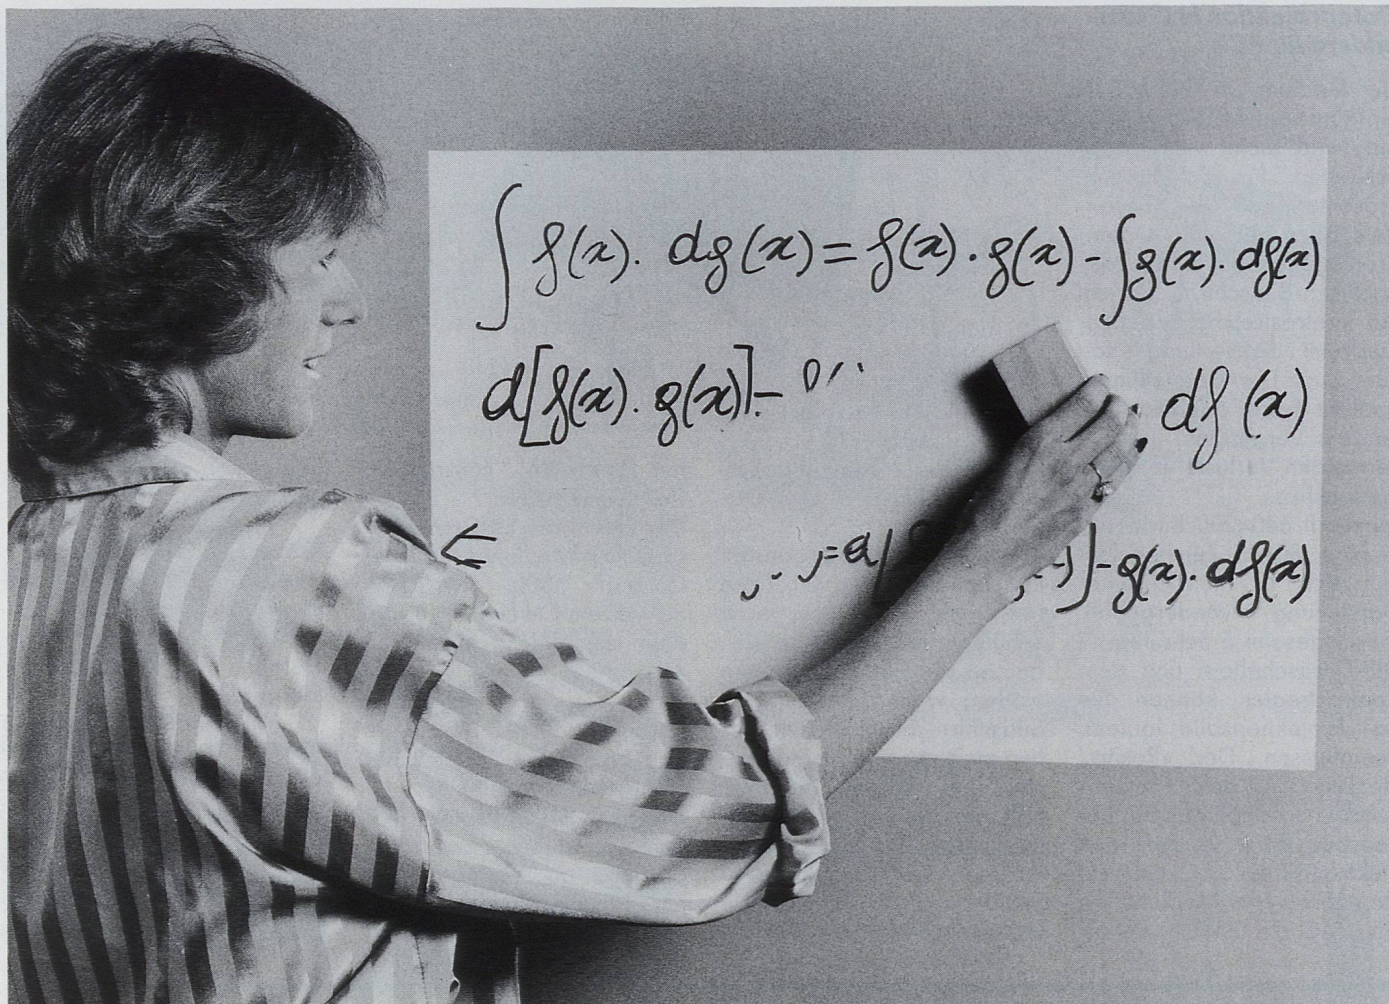 ∫ f(x). dg(x) = f(x) · g(x) - ∫ g(x). df(x)
d[f(x). g(x)] - df(x)
⇐ = d ] - g(x). df(x)